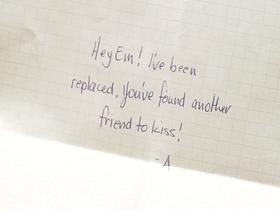 Hey Em! I've been
replaced. You've found another
friend to kiss!
-A